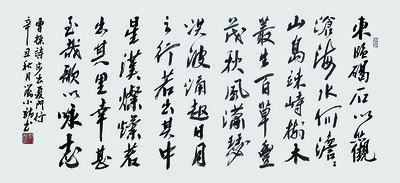 東臨碣石以觀
滄海水何澹澹
山島竦峙樹木
叢生百草豐
茂秋風瀟瑟
洪波涌起日月
之行若出其中
星漢燦爛若
出其里幸甚
至哉歌以咏志
曹操詩步出夏門行
辛丑秋月 小 書